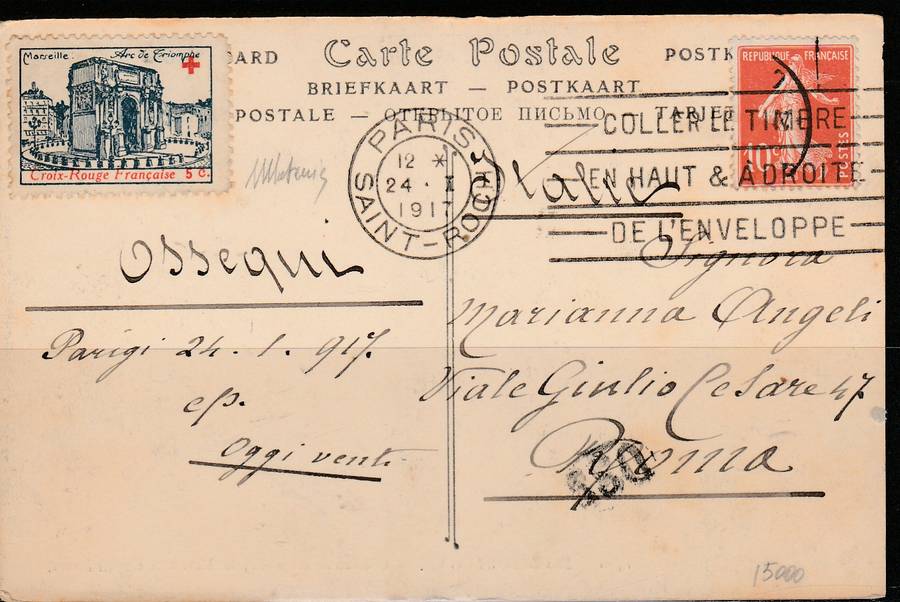 Marseille Arc de Triomphe
Croix-Rouge Française 5 c.
CARD Carte Postale POSTK
BRIEFKAART — POSTKAART
POSTALE — ОТКРЫТОЕ ПИСЬМО — TARJE
REPUBLIQUE FRANÇAISE
10c POSTES
PARIS XVIII
12 *
24 . I
1917
SAINT-ROCH
COLLER LE TIMBRE
EN HAUT & À DROITE
DE L'ENVELOPPE
Ossequi
Parigi 24. 1. 917.
Oggi venti
Italie
Signora
Marianna Angeli
Viale Giulio Cesare 47
Roma
15000